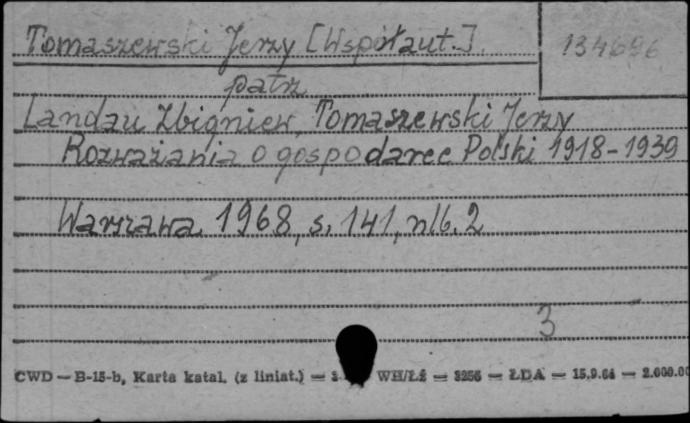 Tomaszewski Jerzy [Współaut.]
134696
patrz
Landau Zbigniew, Tomaszewski Jerzy
Rozważania o gospodarce Polski 1918-1939
Warszawa 1968, s. 141, nlb. 2
3
CWD — B-15-b, Karta katal. (z liniat.) — WH/Łź — 3256 — ŁDA — 15.9.64 — 2.000.00